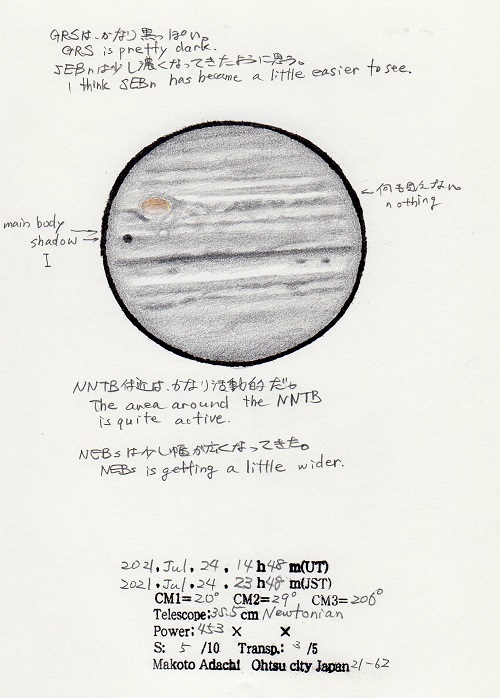 GRSは、かなり黒っぽい。
GRS is pretty dark.
SEBnは少し濃くなってきたように思う。
I think SEBn has become a little easier to see.
何も見えない
nothing
main body
shadow
I
NNTB付近は、かなり活動的だ。
The area around the NNTB
is quite active.
NEBsは少し幅が広くなってきた。
NEBs is getting a little wider.
2021, Jul, 24, 14 h 48 m(UT)
2021, Jul, 24, 23 h 48 m(JST)
CM1= 20° CM2= 29° CM3= 206°
Telescope: 35.5 cm Newtonian
Power: 453 × ×
S: 5 /10 Transp.: 3 /5
Makoto Adachi Ohtsu city Japan 21-62